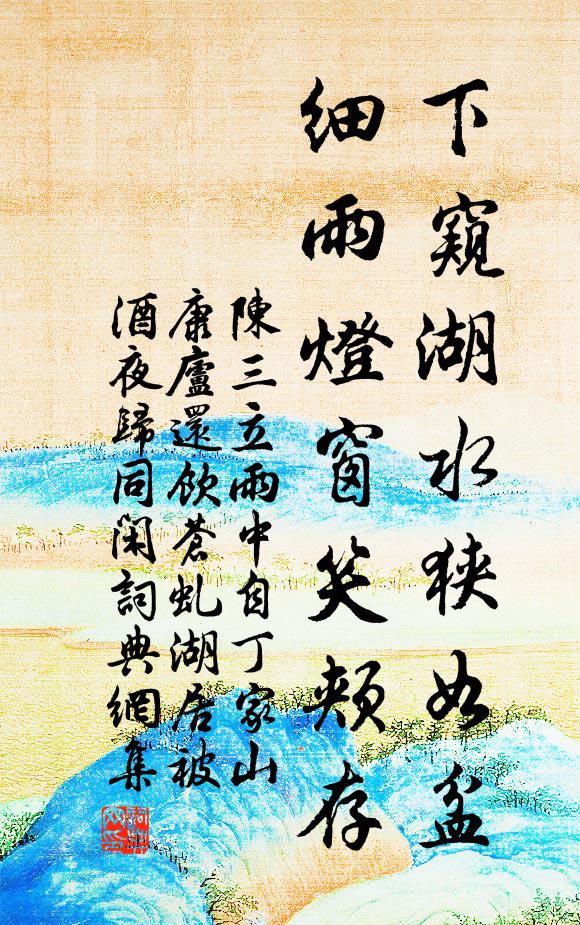 下窺湖水狹如盆
細雨燈窗笑頰存
陳三立雨中自丁家山
康廬還飲蒼虬湖居被
酒夜歸同閑詞典網集